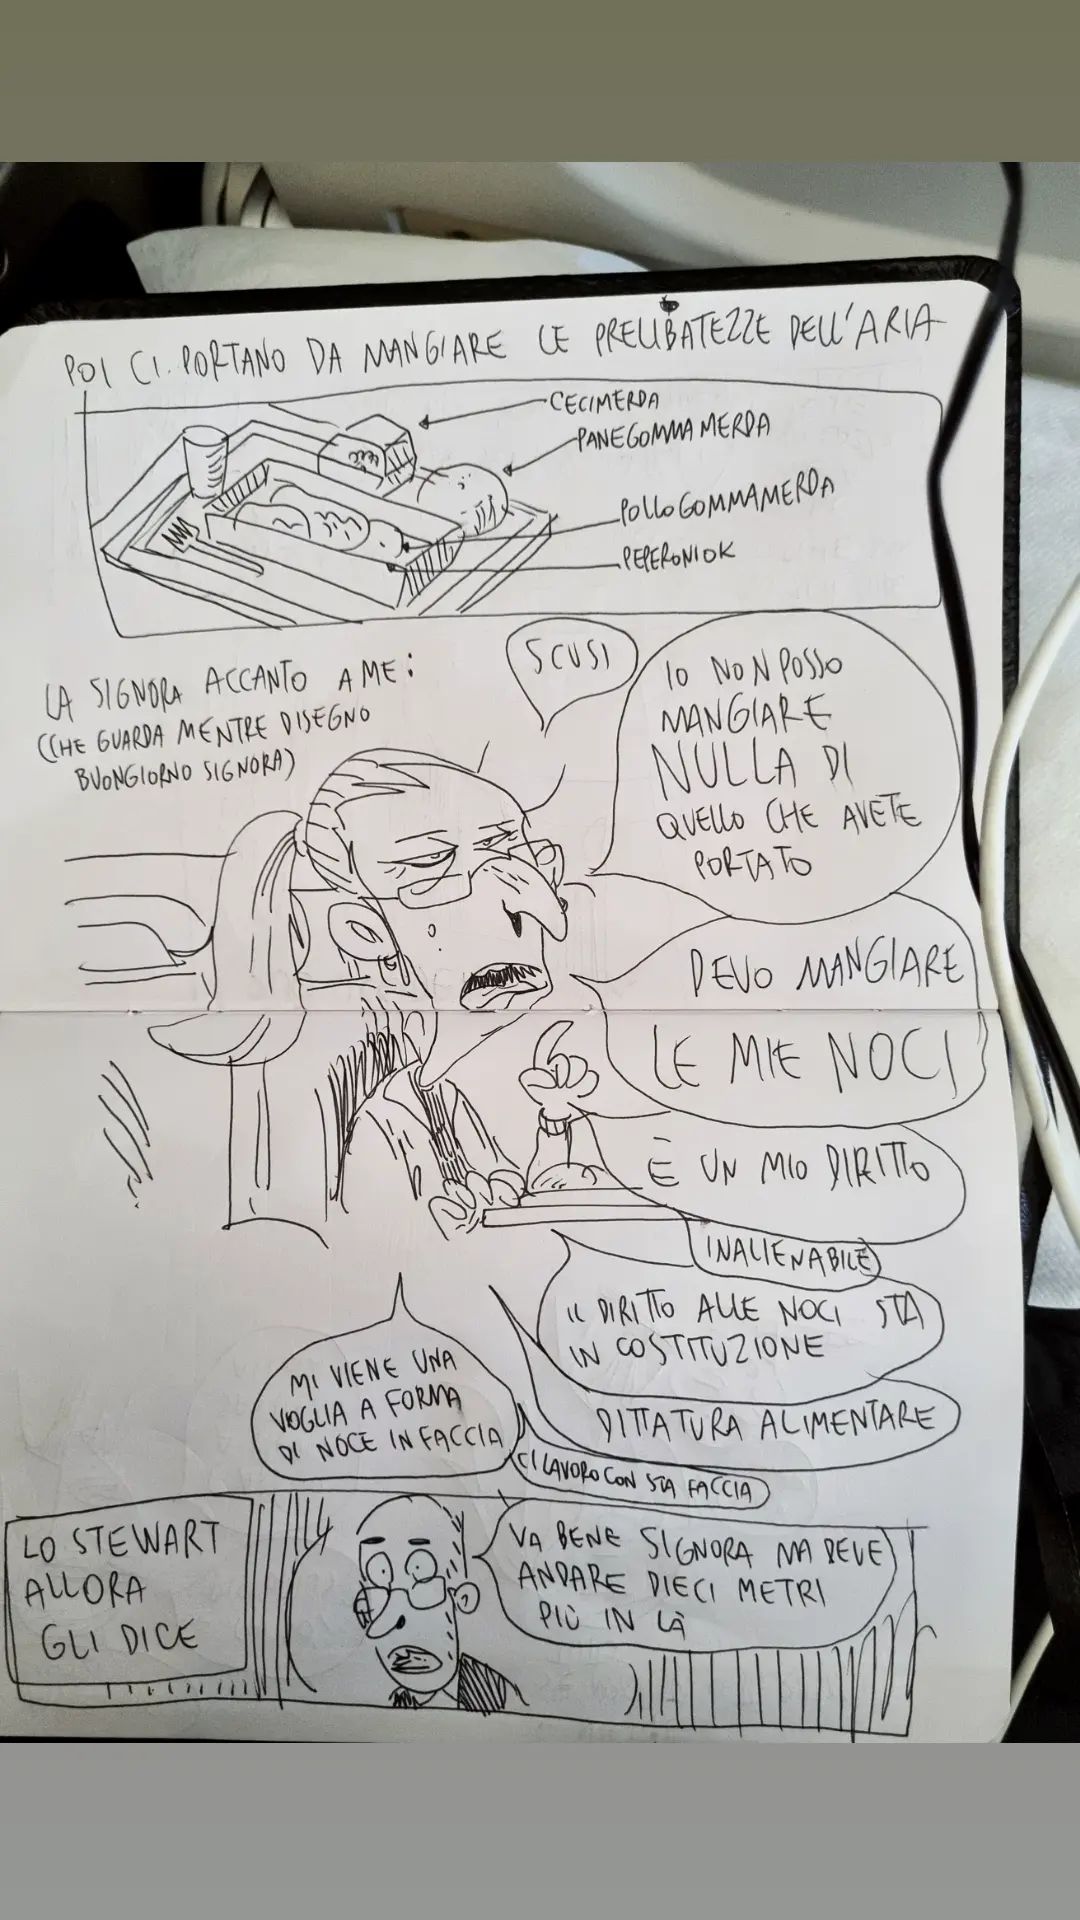 POI CI PORTANO DA MANGIARE LE PRELIBATEZZE DELL'ARIA
CECIMERDA
PANEGOMMAMERDA
POLLOGOMMAMERDA
PEPERONIOK
LA SIGNORA ACCANTO A ME:
(CHE GUARDA MENTRE DISEGNO
BUONGIORNO SIGNORA)
SCUSI
IO NON POSSO
MANGIARE
NULLA DI
QUELLO CHE AVETE
PORTATO
DEVO MANGIARE
LE MIE NOCI
È UN MIO DIRITTO
INALIENABILE
IL DIRITTO ALLE NOCI STA
IN COSTITUZIONE
DITTATURA ALIMENTARE
MI VIENE UNA
VOGLIA A FORMA
DI NOCE IN FACCIA
CI LAVORO CON STA FACCIA
LO STEWART
ALLORA
GLI DICE
VA BENE SIGNORA MA DEVE
ANDARE DIECI METRI
PIÙ IN LÀ